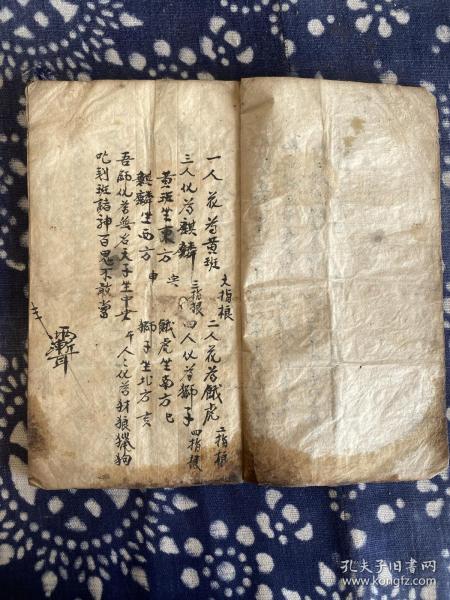 一人花為黄班 大指根 二人花為餓虎 二指根
三人化為麒麟 三指根 四人化為獅子 四指根
黄班生東方 寅 餓虎生南方巳
麒麟生西方申 獅子生北方亥
吾師化為無名天子生中 千人人化為豺狼獵狗
吃到班諸神百鬼不敢當
孔夫子旧书网
www.kongfz.com